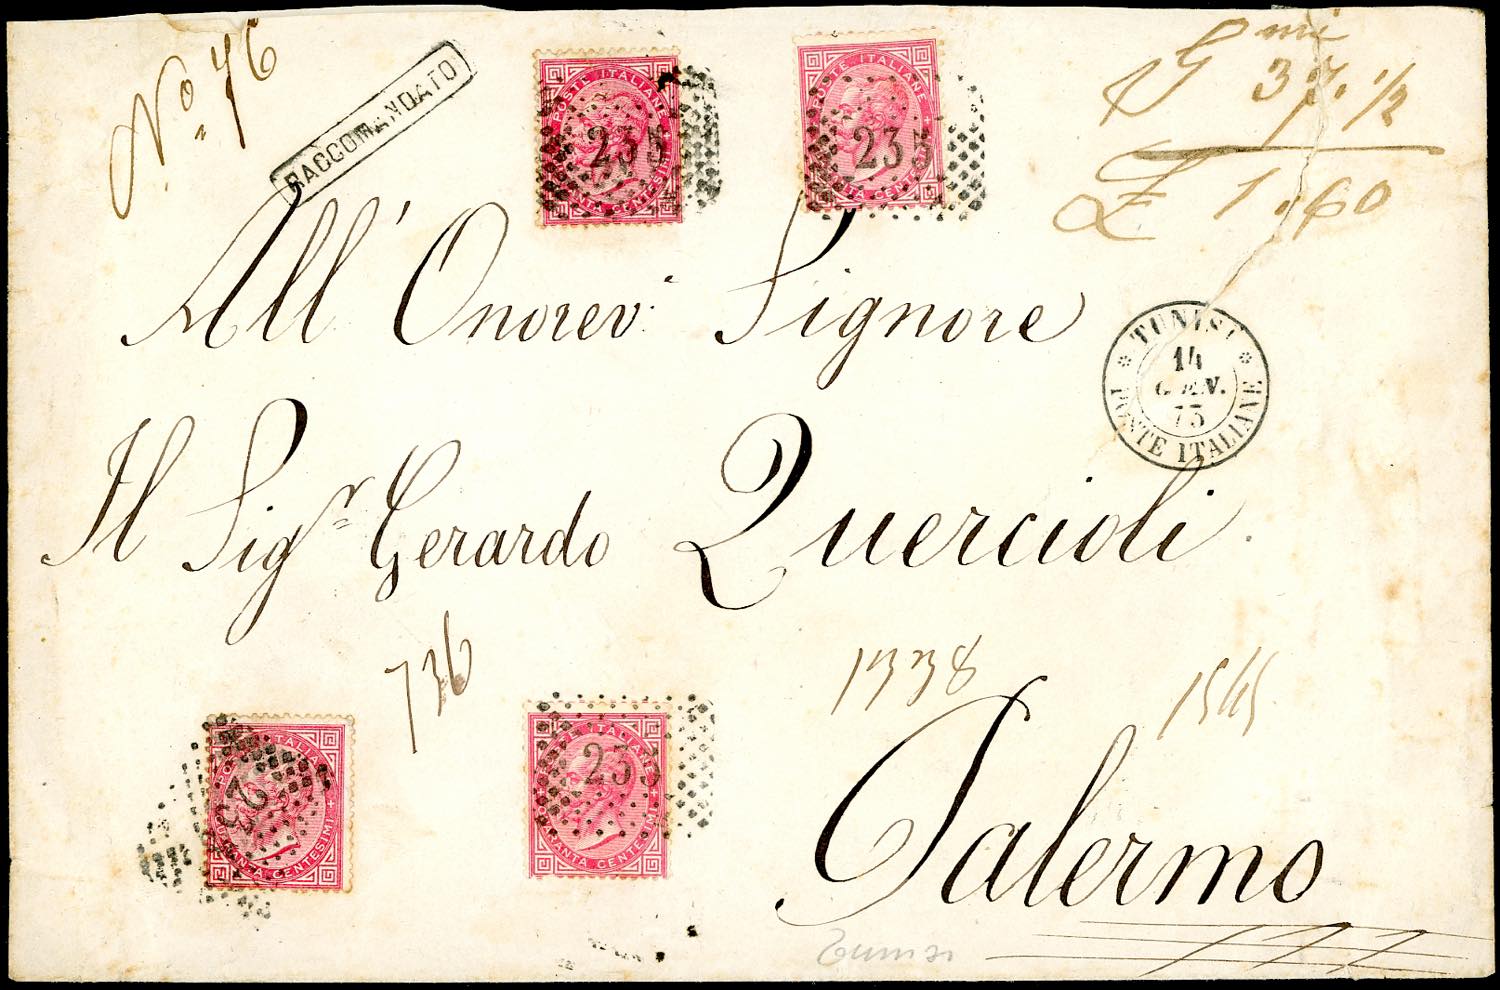 No. 76
RACCOMANDATO
Gmi 37. 1/2
£ 1.60
POSTE ITALIANE
QUARANTA CENTESIMI
235
POSTE ITALIANE
QUARANTA CENTESIMI
235
All' Onorev. Signore
TUNISI
14
GEN.
73
POSTE ITALIANE
Il Sigr. Gerardo Quercioli.
736
1338
1565
POSTE ITALIANE
QUARANTA CENTESIMI
235
POSTE ITALIANE
QUARANTA CENTESIMI
235
Palermo
Tunisi